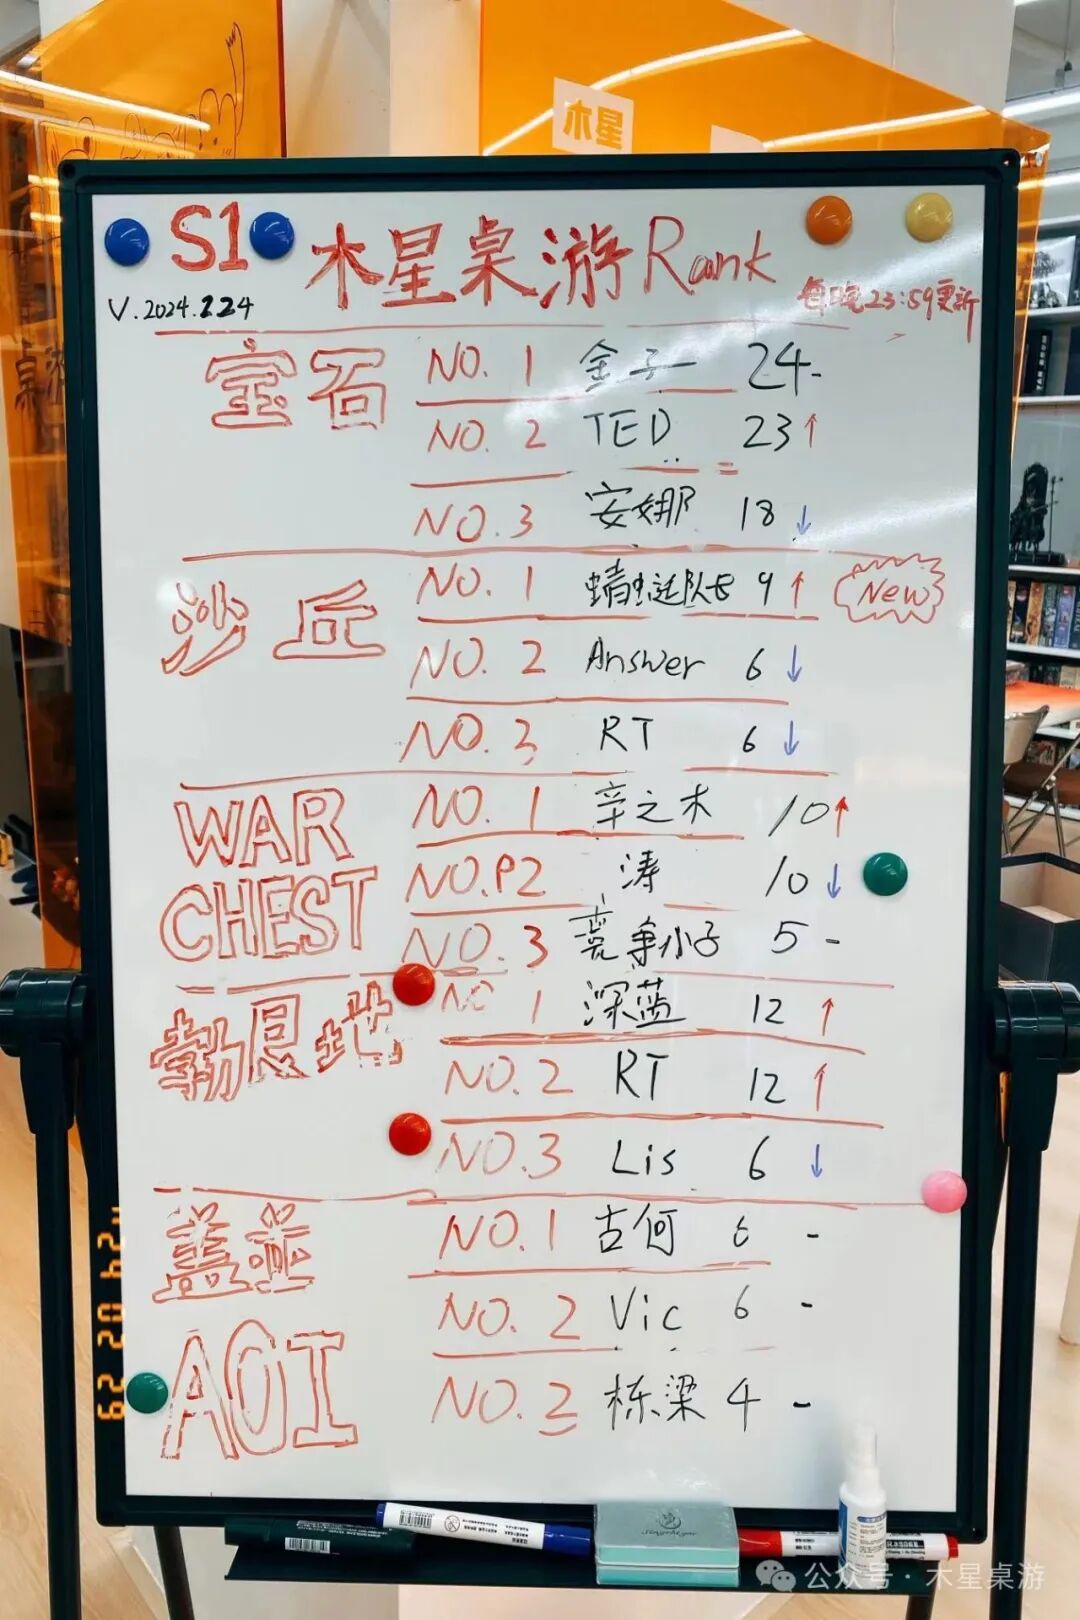 木星
S1 木星桌游Rank
V.2024.2.24 每晚23:59更新
宝石
NO. 1 金子 24 -
NO. 2 TED 23 ↑
NO. 3 安娜 18 ↓
沙丘
NO. 1 蜻蜓队长 9 ↑ New
NO. 2 Answer 6 ↓
NO. 3 RT 6 ↓
WAR
CHEST
NO. 1 辛之木 10 ↑
NO. 2 涛 10 ↓
NO. 3 竞争小子 5 -
勃艮地
NO 1 深蓝 12 ↑
NO. 2 RT 12 ↑
NO. 3 Lis 6 ↓
盖亚
AOI
NO. 1 古何 6 -
NO. 2 Vic 6 -
NO. 3 栋梁 4 -
'24 02 29
公众号·木星桌游